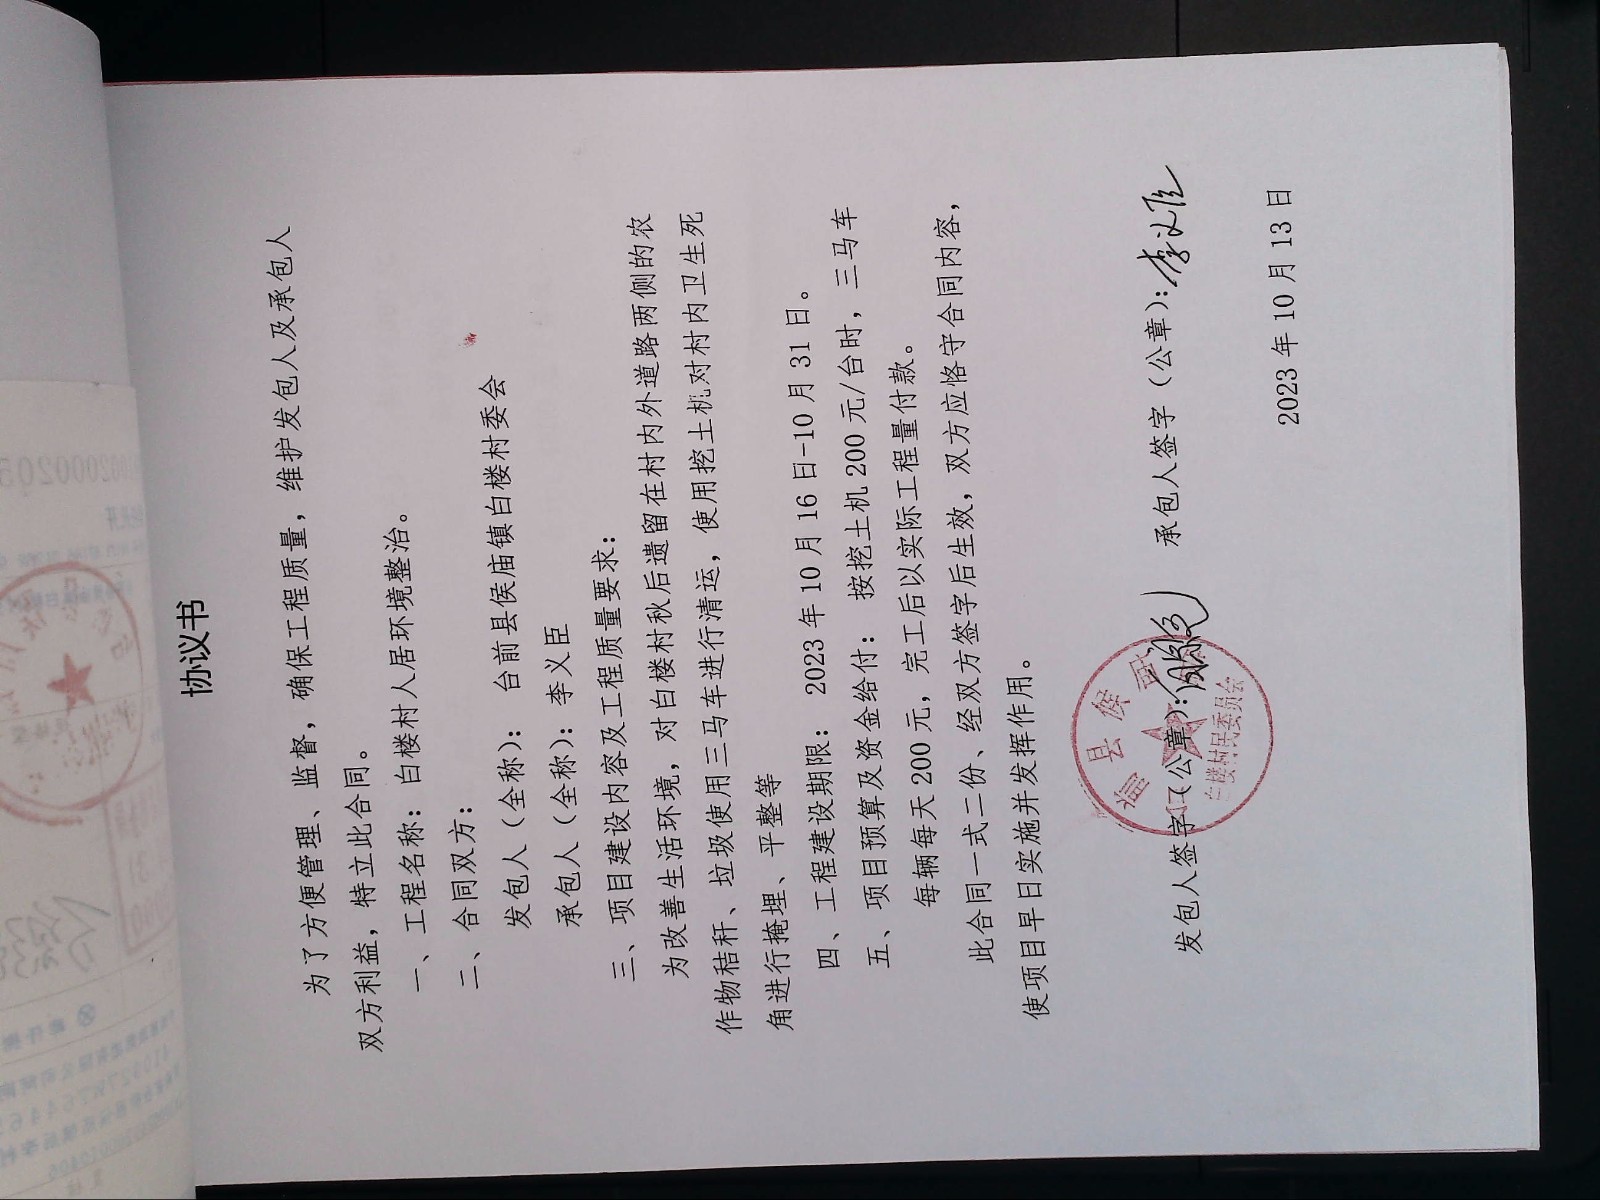 协议书
为了方便管理、监督，确保工程质量，维护发包人及承包人
双方利益，特立此合同。
一、工程名称：白楼村人居环境整治。
二、合同双方：
发包人（全称）：台前县侯庙镇白楼村委会
承包人（全称）：李义臣
三、项目建设内容及工程质量要求：
为改善生活环境，对白楼村秋后遗留在村内外道路两侧的农
作物秸秆、垃圾使用三马车进行清运，使用挖土机对村内卫生死
角进行掩埋、平整等
四、工程建设期限： 2023 年 10 月 16 日-10 月 31 日。
五、项目预算及资金给付： 按挖土机 200 元/台时，三马车
每辆每天 200 元，完工后以实际工程量付款。
此合同一式二份、经双方签字后生效，双方应恪守合同内容，
使项目早日实施并发挥作用。
发包人签字（公章）： 承包人签字（公章）：李义臣
白楼村民委员会
2023 年 10 月 13 日